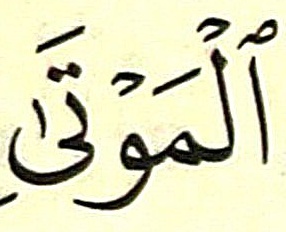 ٱلۡمَوۡتَىٰ